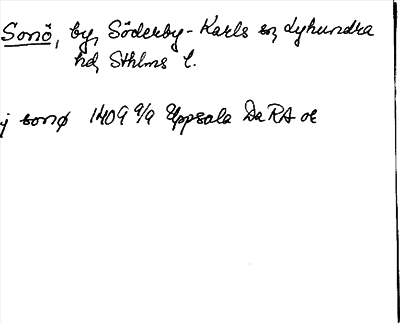 Sonö, by, Söderby-Karls sn, Lyhundra
hd, Sthlms l.
j sonø 1409 9/9 Uppsala DaRA or